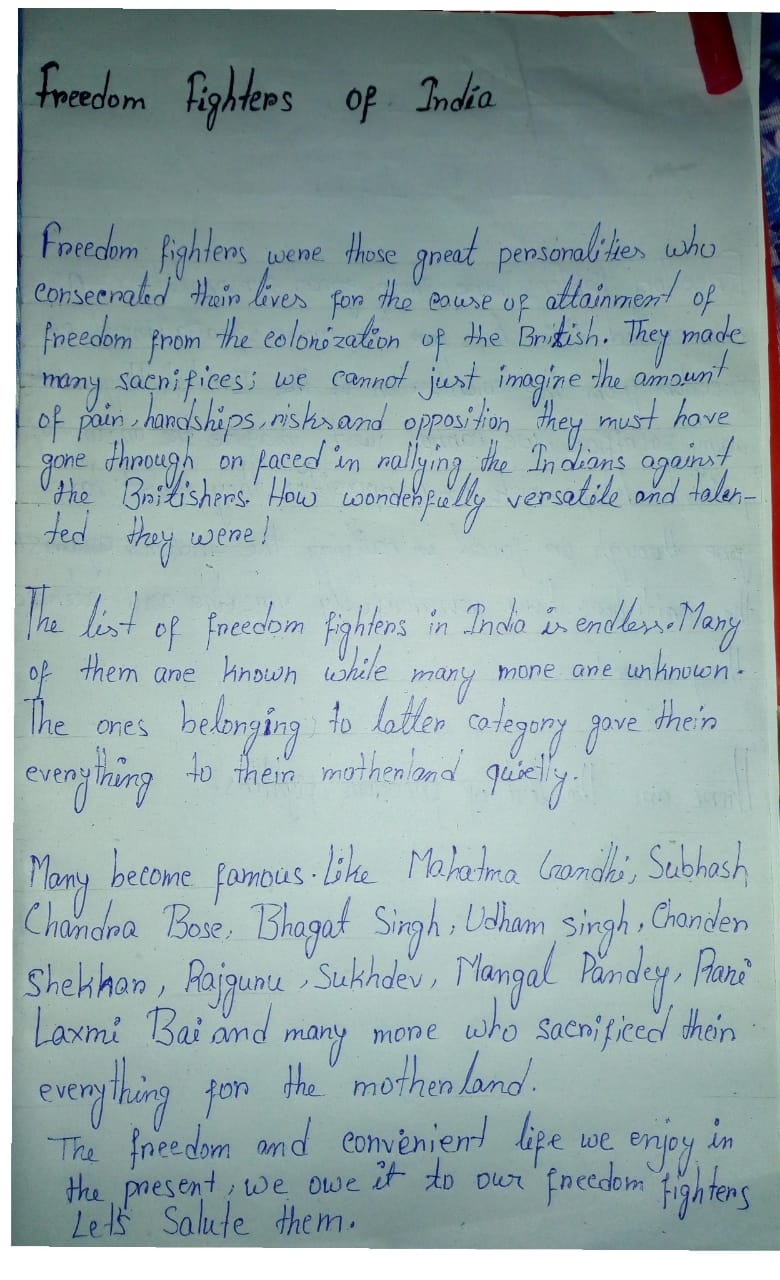 Freedom Fighters of India
Freedom fighters were those great personalities who
consecrated their lives for the cause of attainment of
freedom from the colonization of the British. They made
many sacrifices; we cannot just imagine the amount
of pain, hardships, risks and opposition they must have
gone through or faced in rallying the Indians against
the Britishers. How wonderfully versatile and talen-
ted they were!
The list of freedom fighters in India is endless. Many
of them are known while many more are unknown.
The ones belonging to latter category gave their
everything to their motherland quietly.
Many become famous. Like Mahatma Gandhi, Subhash
Chandra Bose, Bhagat Singh, Udham singh, Chander
Shekhar, Rajguru, Sukhdev, Mangal Pandey, Rani
Laxmi Bai and many more who sacrificed their
everything for the motherland.
The freedom and convenient life we enjoy in
the present, we owe it to our freedom fighters
Lets Salute them.